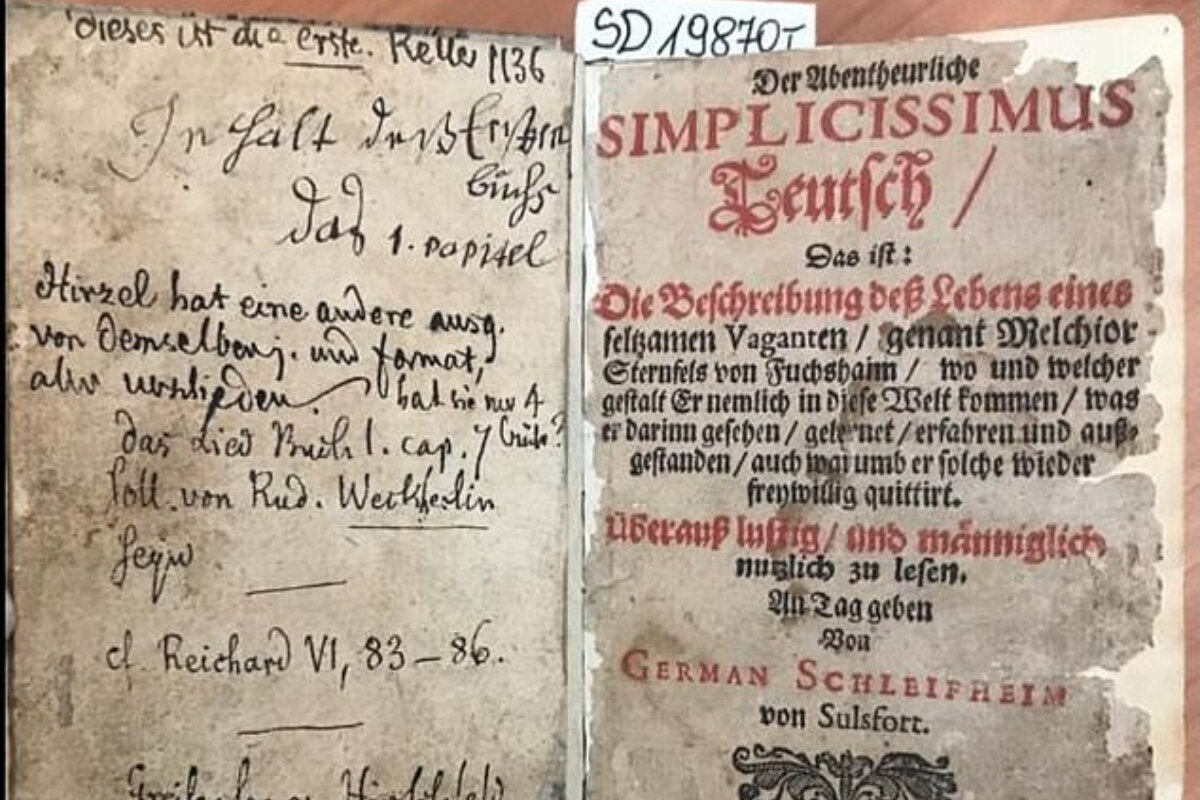 dieses ist die erste. Keller 1136
SD 19870-
Inhalt deß Ersten
buchs
das 1. capitel
Hirzel hat eine andere ausg.
von demselben j. und format,
aber verschieden. hat sie nur 4
das Lied Buch 1. cap. 7
soll von Rud. Weckherlin
seyn
cf. Reichard VI, 83–86.
Der Abentheurliche
SIMPLICISSIMUS
Teutsch /
Das ist:
Die Beschreibung deß Lebens eines
seltzamen Vaganten / genant Melchior
Sternfels von Fuchshaim / wo und welcher
gestalt Er nemlich in diese Welt kommen / was
er darinn gesehen / gelernet / erfahren und auß-
gestanden / auch warumb er solche wieder
freywillig quittirt.
Überauß lustig / und männiglich
nutzlich zu lesen.
An Tag geben
Von
GERMAN SCHLEIFHEIM
von Sulsfort.